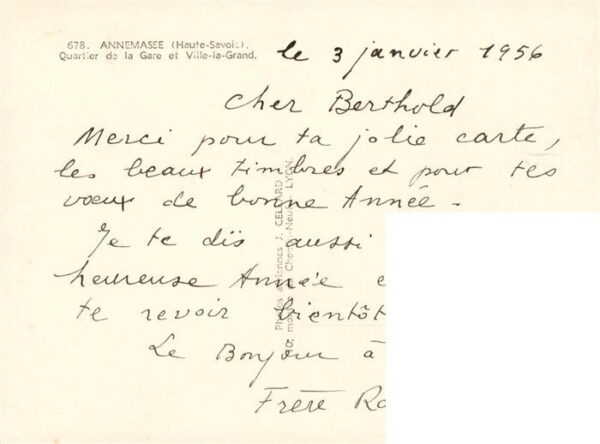 678. ANNEMASSE (Haute-Savoie).
Quartier de la Gare et Ville-la-Grand.
le 3 janvier 1956
Cher Berthold
Merci pour ta jolie carte,
les beaux timbres et pour tes
vœux de bonne Année -
Je te dis aussi
heureuse Année
te revoir bientôt
Le Bonjour à
Frère
Photos aériennes J. CELLARD
LYON.